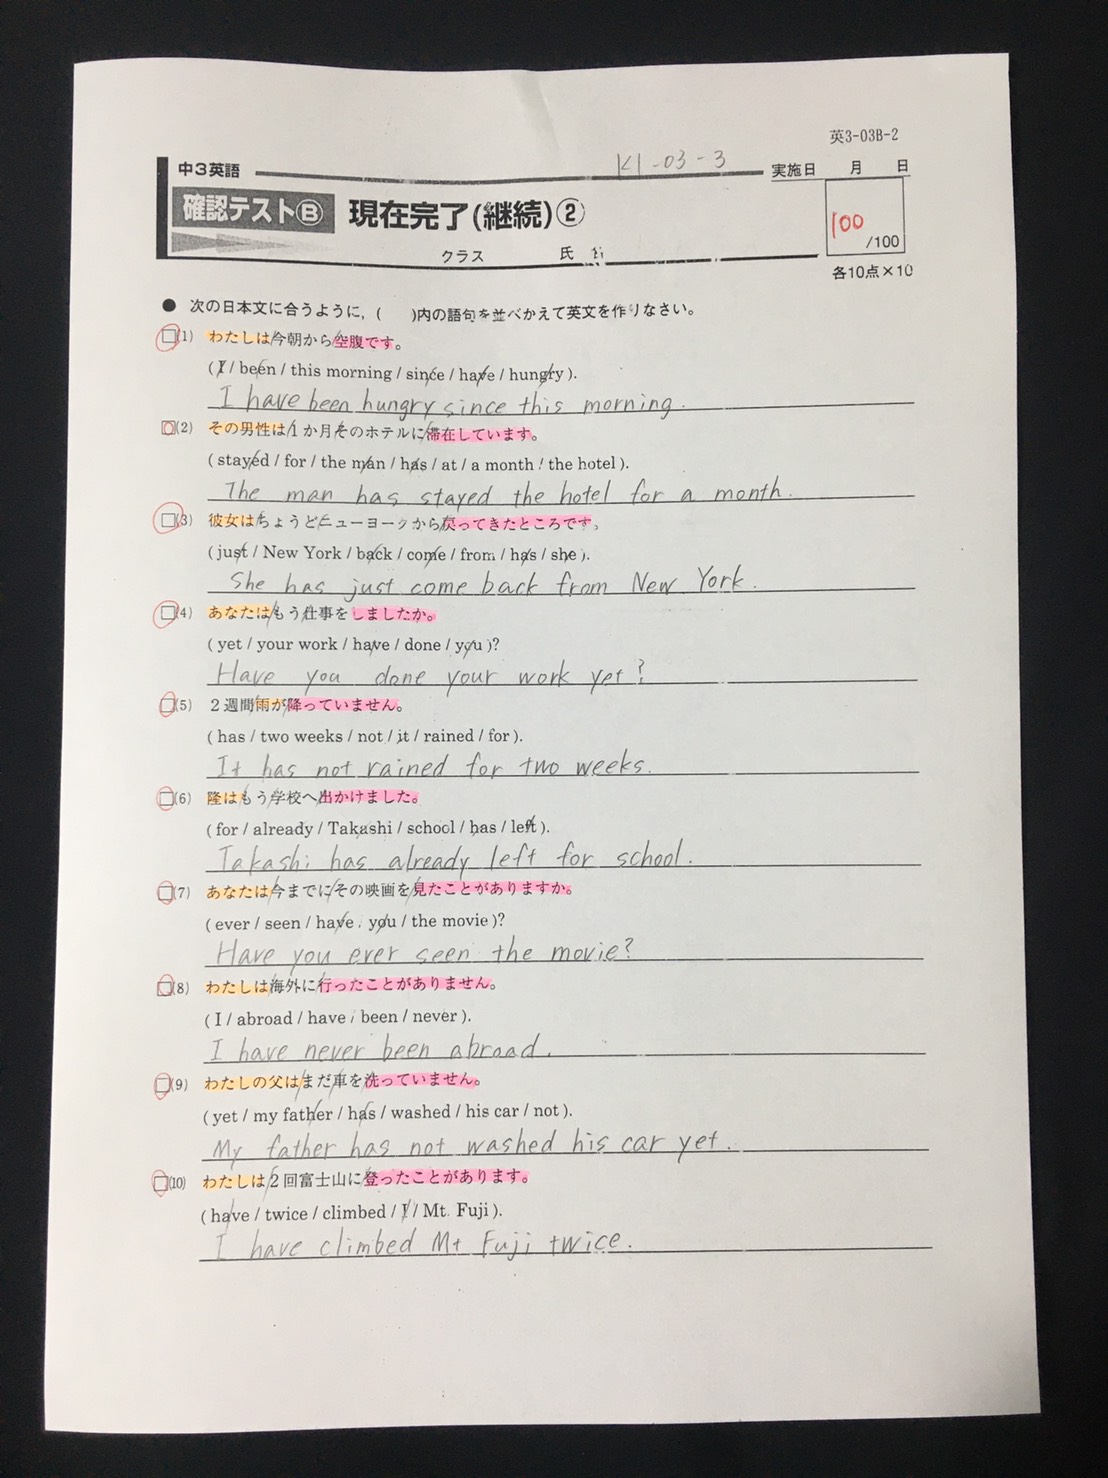 英3-03B-2
中3英語
K1-03-3
実施日 月 日
確認テストⒷ 現在完了(継続)②
100
/100
クラス 氏
各10点×10
● 次の日本文に合うように, ( )内の語句を並べかえて英文を作りなさい。
□(1) わたしは今朝から空腹です。
( I / been / this morning / since / have / hungry ).
I have been hungry since this morning.
□(2) その男性は1か月そのホテルに滞在しています。
( stayed / for / the man / has / at / a month / the hotel ).
The man has stayed the hotel for a month.
□(3) 彼女はちょうどニューヨークから戻ってきたところです。
( just / New York / back / come / from / has / she ).
She has just come back from New York.
□(4) あなたはもう仕事をしましたか。
( yet / your work / have / done / you )?
Have you done your work yet?
□(5) 2週間雨が降っていません。
( has / two weeks / not / it / rained / for ).
It has not rained for two weeks.
□(6) 隆はもう学校へ出かけました。
( for / already / Takashi / school / has / left ).
Takashi has already left for school.
□(7) あなたは今までにその映画を見たことがありますか。
( ever / seen / have / you / the movie )?
Have you ever seen the movie?
□(8) わたしは海外に行ったことがありません。
( I / abroad / have / been / never ).
I have never been abroad.
□(9) わたしの父はまだ車を洗っていません。
( yet / my father / has / washed / his car / not ).
My father has not washed his car yet.
□(10) わたしは2回富士山に登ったことがあります。
( have / twice / climbed / I / Mt. Fuji ).
I have climbed Mt Fuji twice.